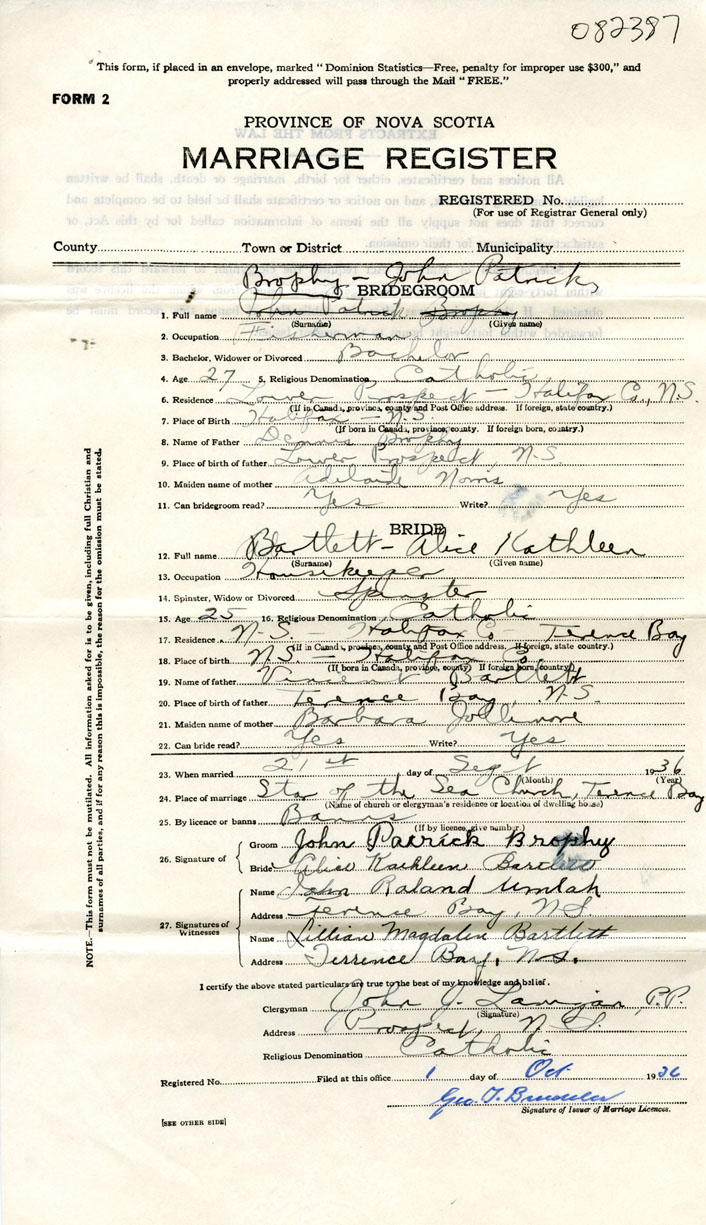 082387
"This form, if placed in an envelope, marked "Dominion Statistics—Free, penalty for improper use $300," and
properly addressed will pass through the Mail "FREE."
FORM 2
PROVINCE OF NOVA SCOTIA
MARRIAGE REGISTER
REGISTERED No.
(For use of Registrar General only)
County Town or District Municipality
Brophy - John Patrick
BRIDEGROOM
1. Full name John Patrick Brophy
(Surname) (Given name)
2. Occupation Fisherman
3. Bachelor, Widower or Divorced Bachelor
4. Age 27 5. Religious Denomination Catholic
6. Residence Lower Prospect - Halifax Co., N.S.
(If in Canada, province, county and Post Office address. If foreign, state country.)
7. Place of Birth Halifax - N.S.
(If born in Canada, province, county. If foreign born, country.)
8. Name of Father Dennis Brophy
9. Place of birth of father Lower Prospect, N.S
10. Maiden name of mother Adelaide Norris
11. Can bridegroom read? Yes Write? Yes
BRIDE
12. Full name Bartlett - Alice Kathleen
(Surname) (Given name)
13. Occupation Housekeeper
14. Spinster, Widow or Divorced Spinster
15. Age 25 16. Religious Denomination Catholic
17. Residence N.S. - Halifax Co Terence Bay
(If in Canada, province, county and Post Office address. If foreign, state country.)
18. Place of birth N.S. - Halifax
(If born in Canada, province, county) If foreign born, country)
19. Name of father Vincent Bartlett
20. Place of birth of father Terence Bay, N.S.
21. Maiden name of mother Barbara Jollimore
22. Can bride read? Yes Write? Yes
23. When married 21st day of Sept 1936
(Month) (Year)
24. Place of marriage Star of the Sea Church, Terence Bay
(Name of church or clergyman's residence or location of dwelling house)
25. By licence or banns Banns
(If by licence, give number)
26. Signature of
Groom John Patrick Brophy
Bride Alice Kathleen Bartlett
27. Signatures of Witnesses
Name John Roland Umlah
Address Terence Bay, N.S.
Name Lillian Magdalen Bartlett
Address Terrence Bay, N.S.
I certify the above stated particulars are true to the best of my knowledge and belief.
Clergyman John J. Lanigan, P.P.
(Signature)
Address Prospect, N.S.
Religious Denomination Catholic
Registered No. Filed at this office 1 day of Oct 1936
Geo. T.
Signature of Issuer of Marriage Licences.
[SEE OTHER SIDE]
NOTE.—This form must not be mutilated. All information asked for is to be given, including full Christian and
surnames of all parties, and if for any reason this is impossible, the reason for the omission must be stated.